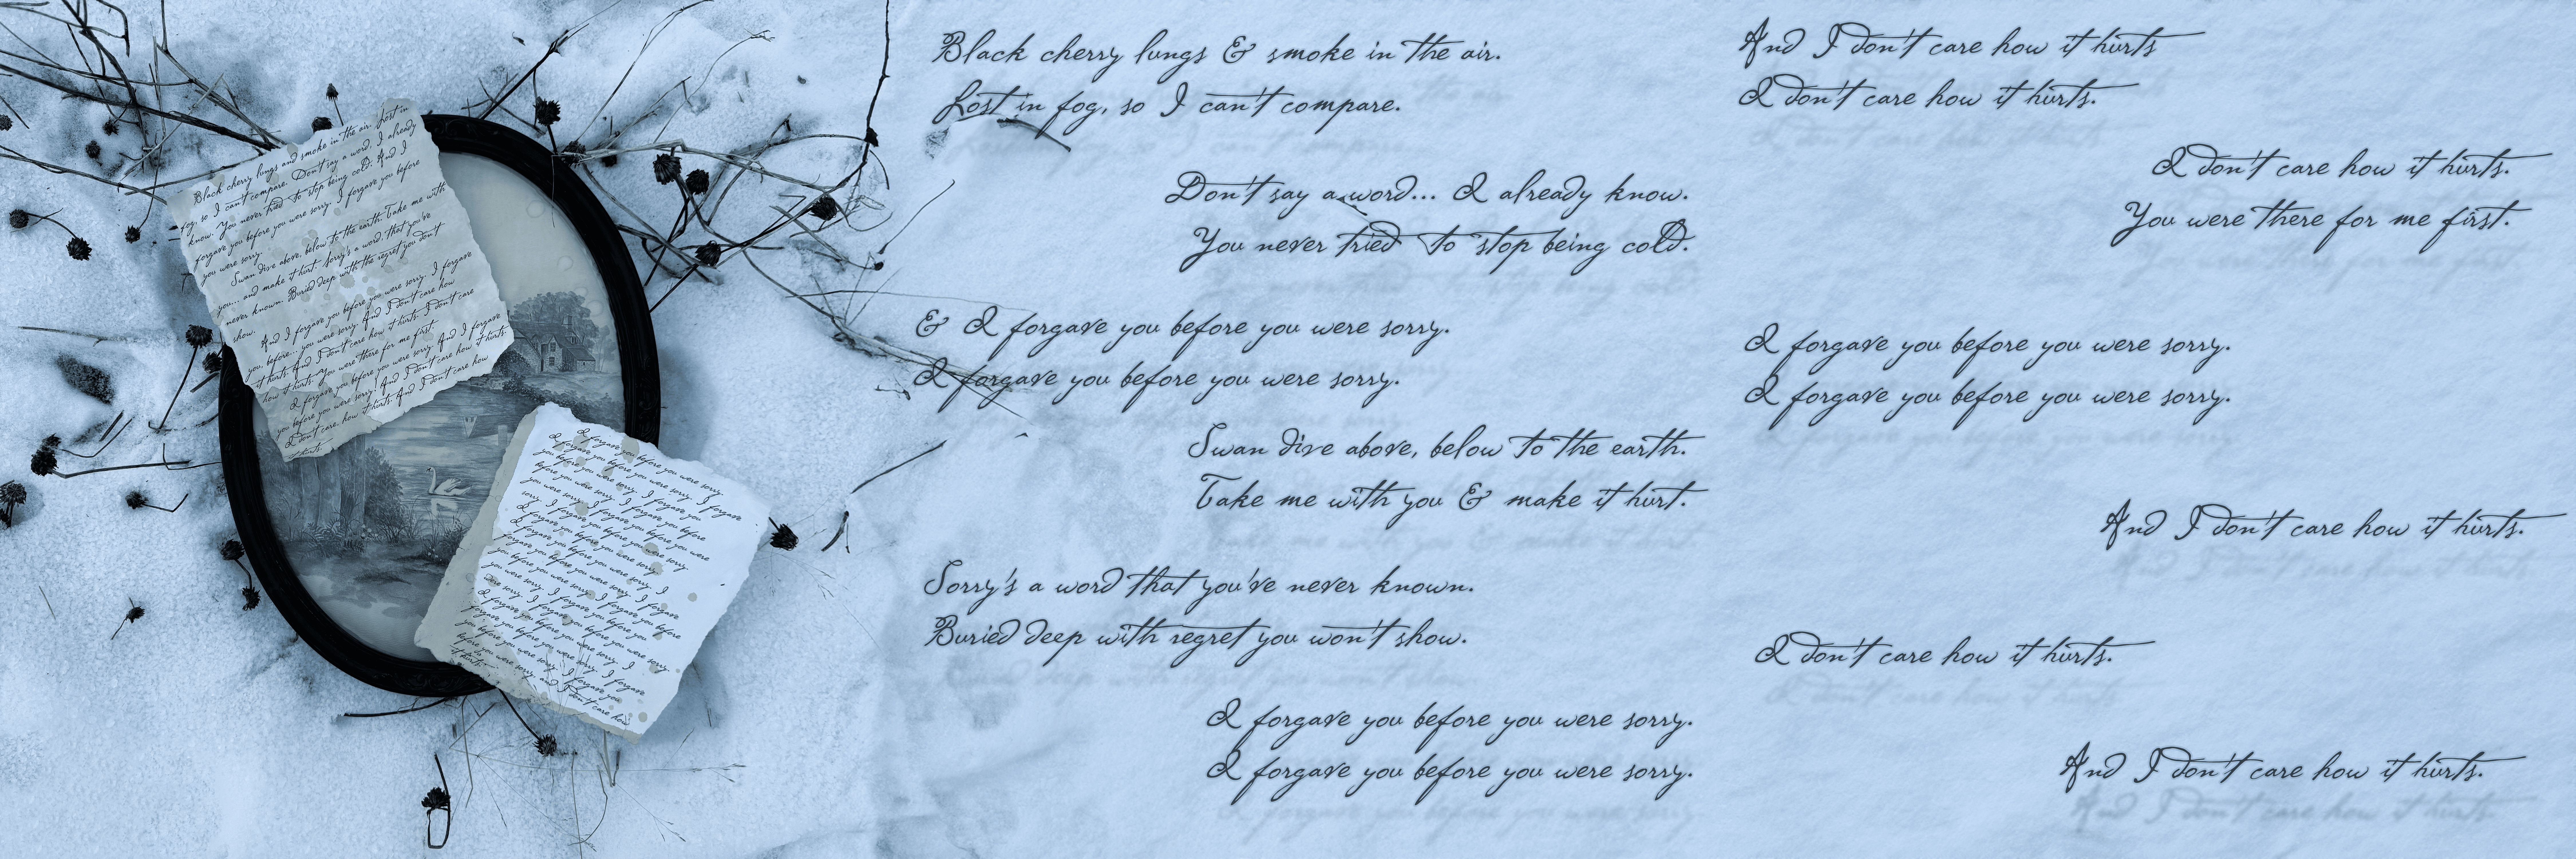 Black cherry lungs and smoke in the air. Lost in
fog, so I can't compare. Don't say a word, I already
know. You never tried to stop being cold. And I
forgave you before you were sorry. I forgave you before
you were sorry.
Swan dive above, below to the earth. Take me with
you... and make it hurt. Sorry's a word, that you've
never known. Buried deep with the regret you don't
show.
And I forgave you before you were sorry. I forgave
you before... you were sorry. And I don't care how
it hurts. And I don't care how it hurts. I don't care
how it hurts. You were there for me first.
I forgave you before you were sorry. And I forgave
you before you were sorry. And I don't care how it hurts.
I don't care how it hurts. And I don't care how
it hurts.
I forgave you before you were sorry.
I forgave you before you were sorry. I forgave
Black cherry lungs & smoke in the air.
Lost in fog, so I can't compare.
Don't say a word... I already know.
You never tried to stop being cold.
& I forgave you before you were sorry.
I forgave you before you were sorry.
Swan dive above, below to the earth.
Take me with you & make it hurt.
Sorry's a word that you've never known.
Buried deep with regret you won't show.
I forgave you before you were sorry.
I forgave you before you were sorry.
And I don't care how it hurts
I don't care how it hurts.
I don't care how it hurts.
You were there for me first.
I forgave you before you were sorry.
I forgave you before you were sorry.
And I don't care how it hurts.
I don't care how it hurts.
And I don't care how it hurts.